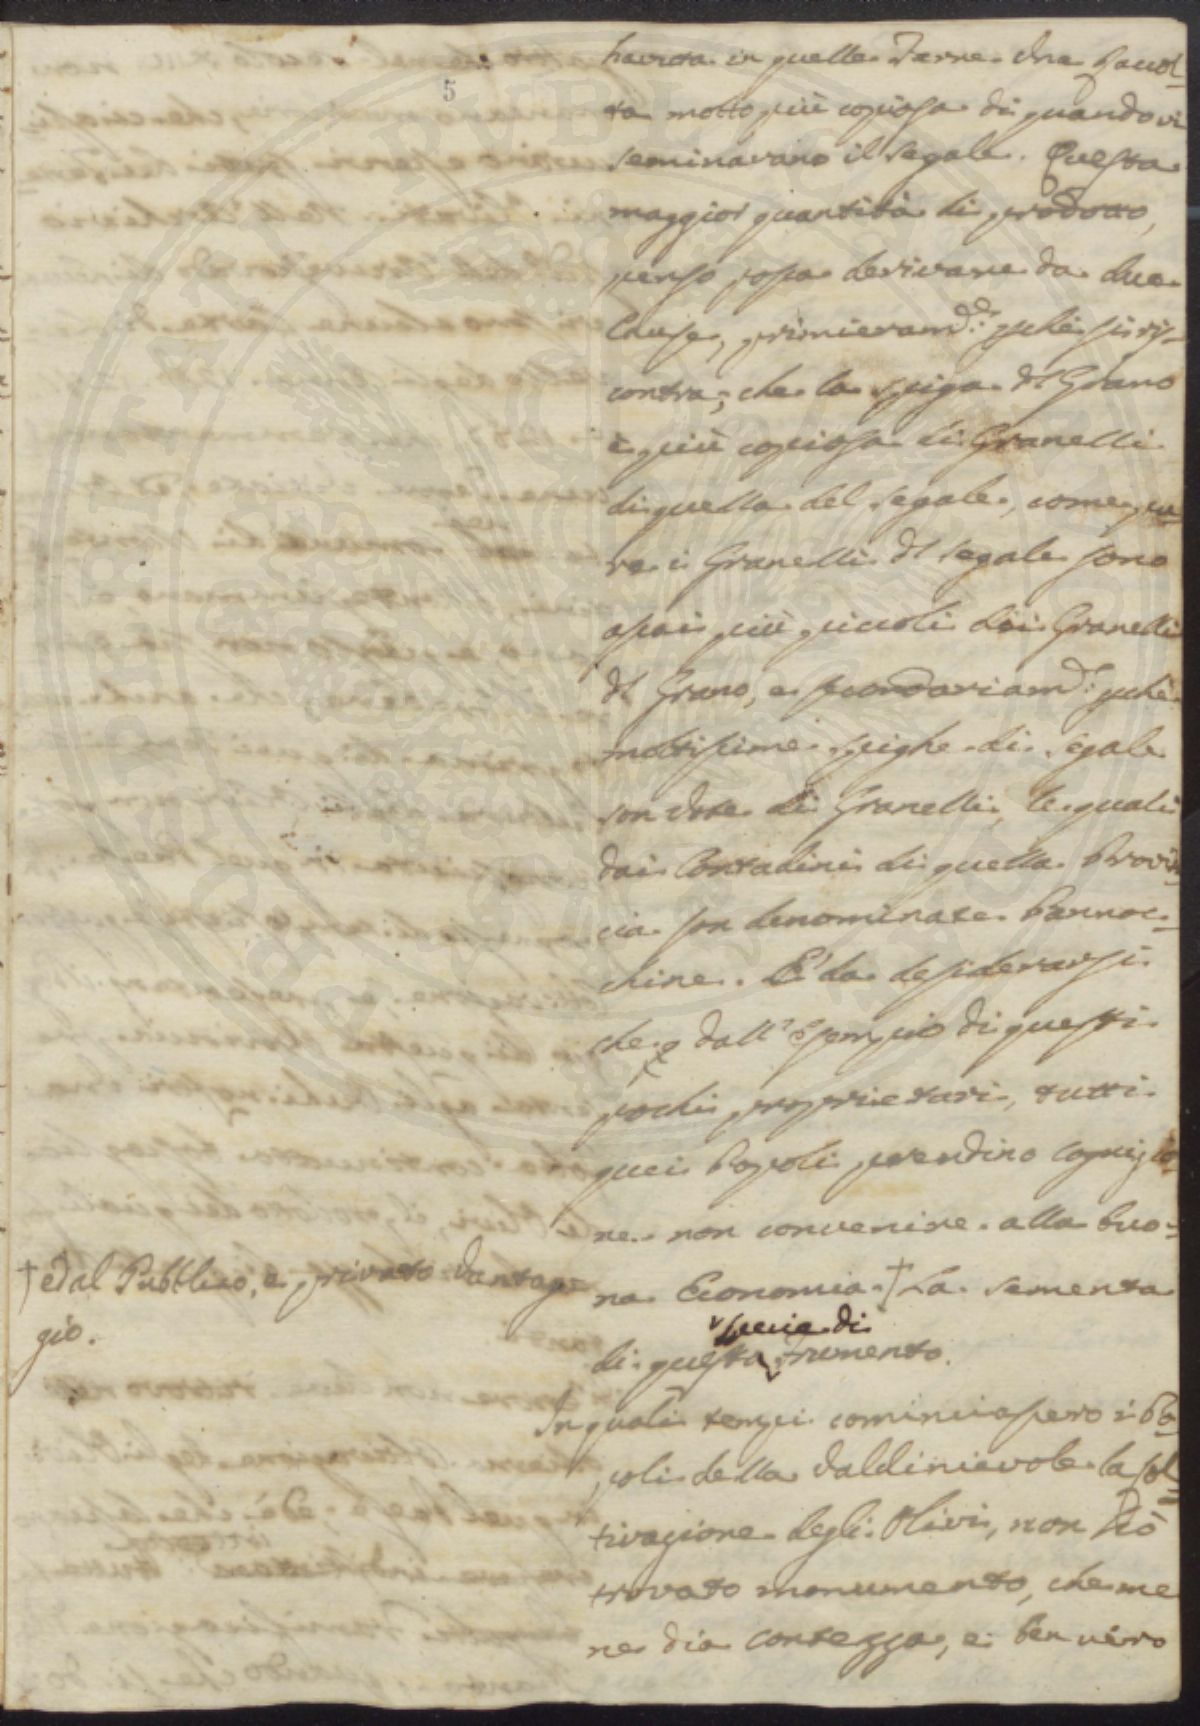 5
havuta in quelle Terre una Racol-
ta molto più copiosa di quando vi
seminavano il Segale. Questa
maggior quantità di prodotto,
penso possa derivare da due
Cause, primieram.te pchè si ris-
contra, che la spiga dl Grano
è più copiosa di Granelli
di quella del Segale, come pu-
re i Granelli dl Segale sono
assai più piccoli dei Granelli
dl Grano, e secondariam.te pchè
moltissime spighe di Segale
son vote di Granelli, le quali
dai Contadini di quella Provin-
cia son denominate Pannoc-
chine. È da desiderarsi
che dall'esempio di questi
pochi proprietari, tutti
quei Popoli prendino cognizio-
ne non convenire alla buo-
na Economia † La sementa
† ed al Pubblico, e privato vantag-
gio.
specie di
di questa Frumento.
In quali tempi cominciassero i Po-
poli della Valdinievole la Col-
tivazione degli Olivi, non hò
trovato monumento, che me
ne dia contezza, e ben vero